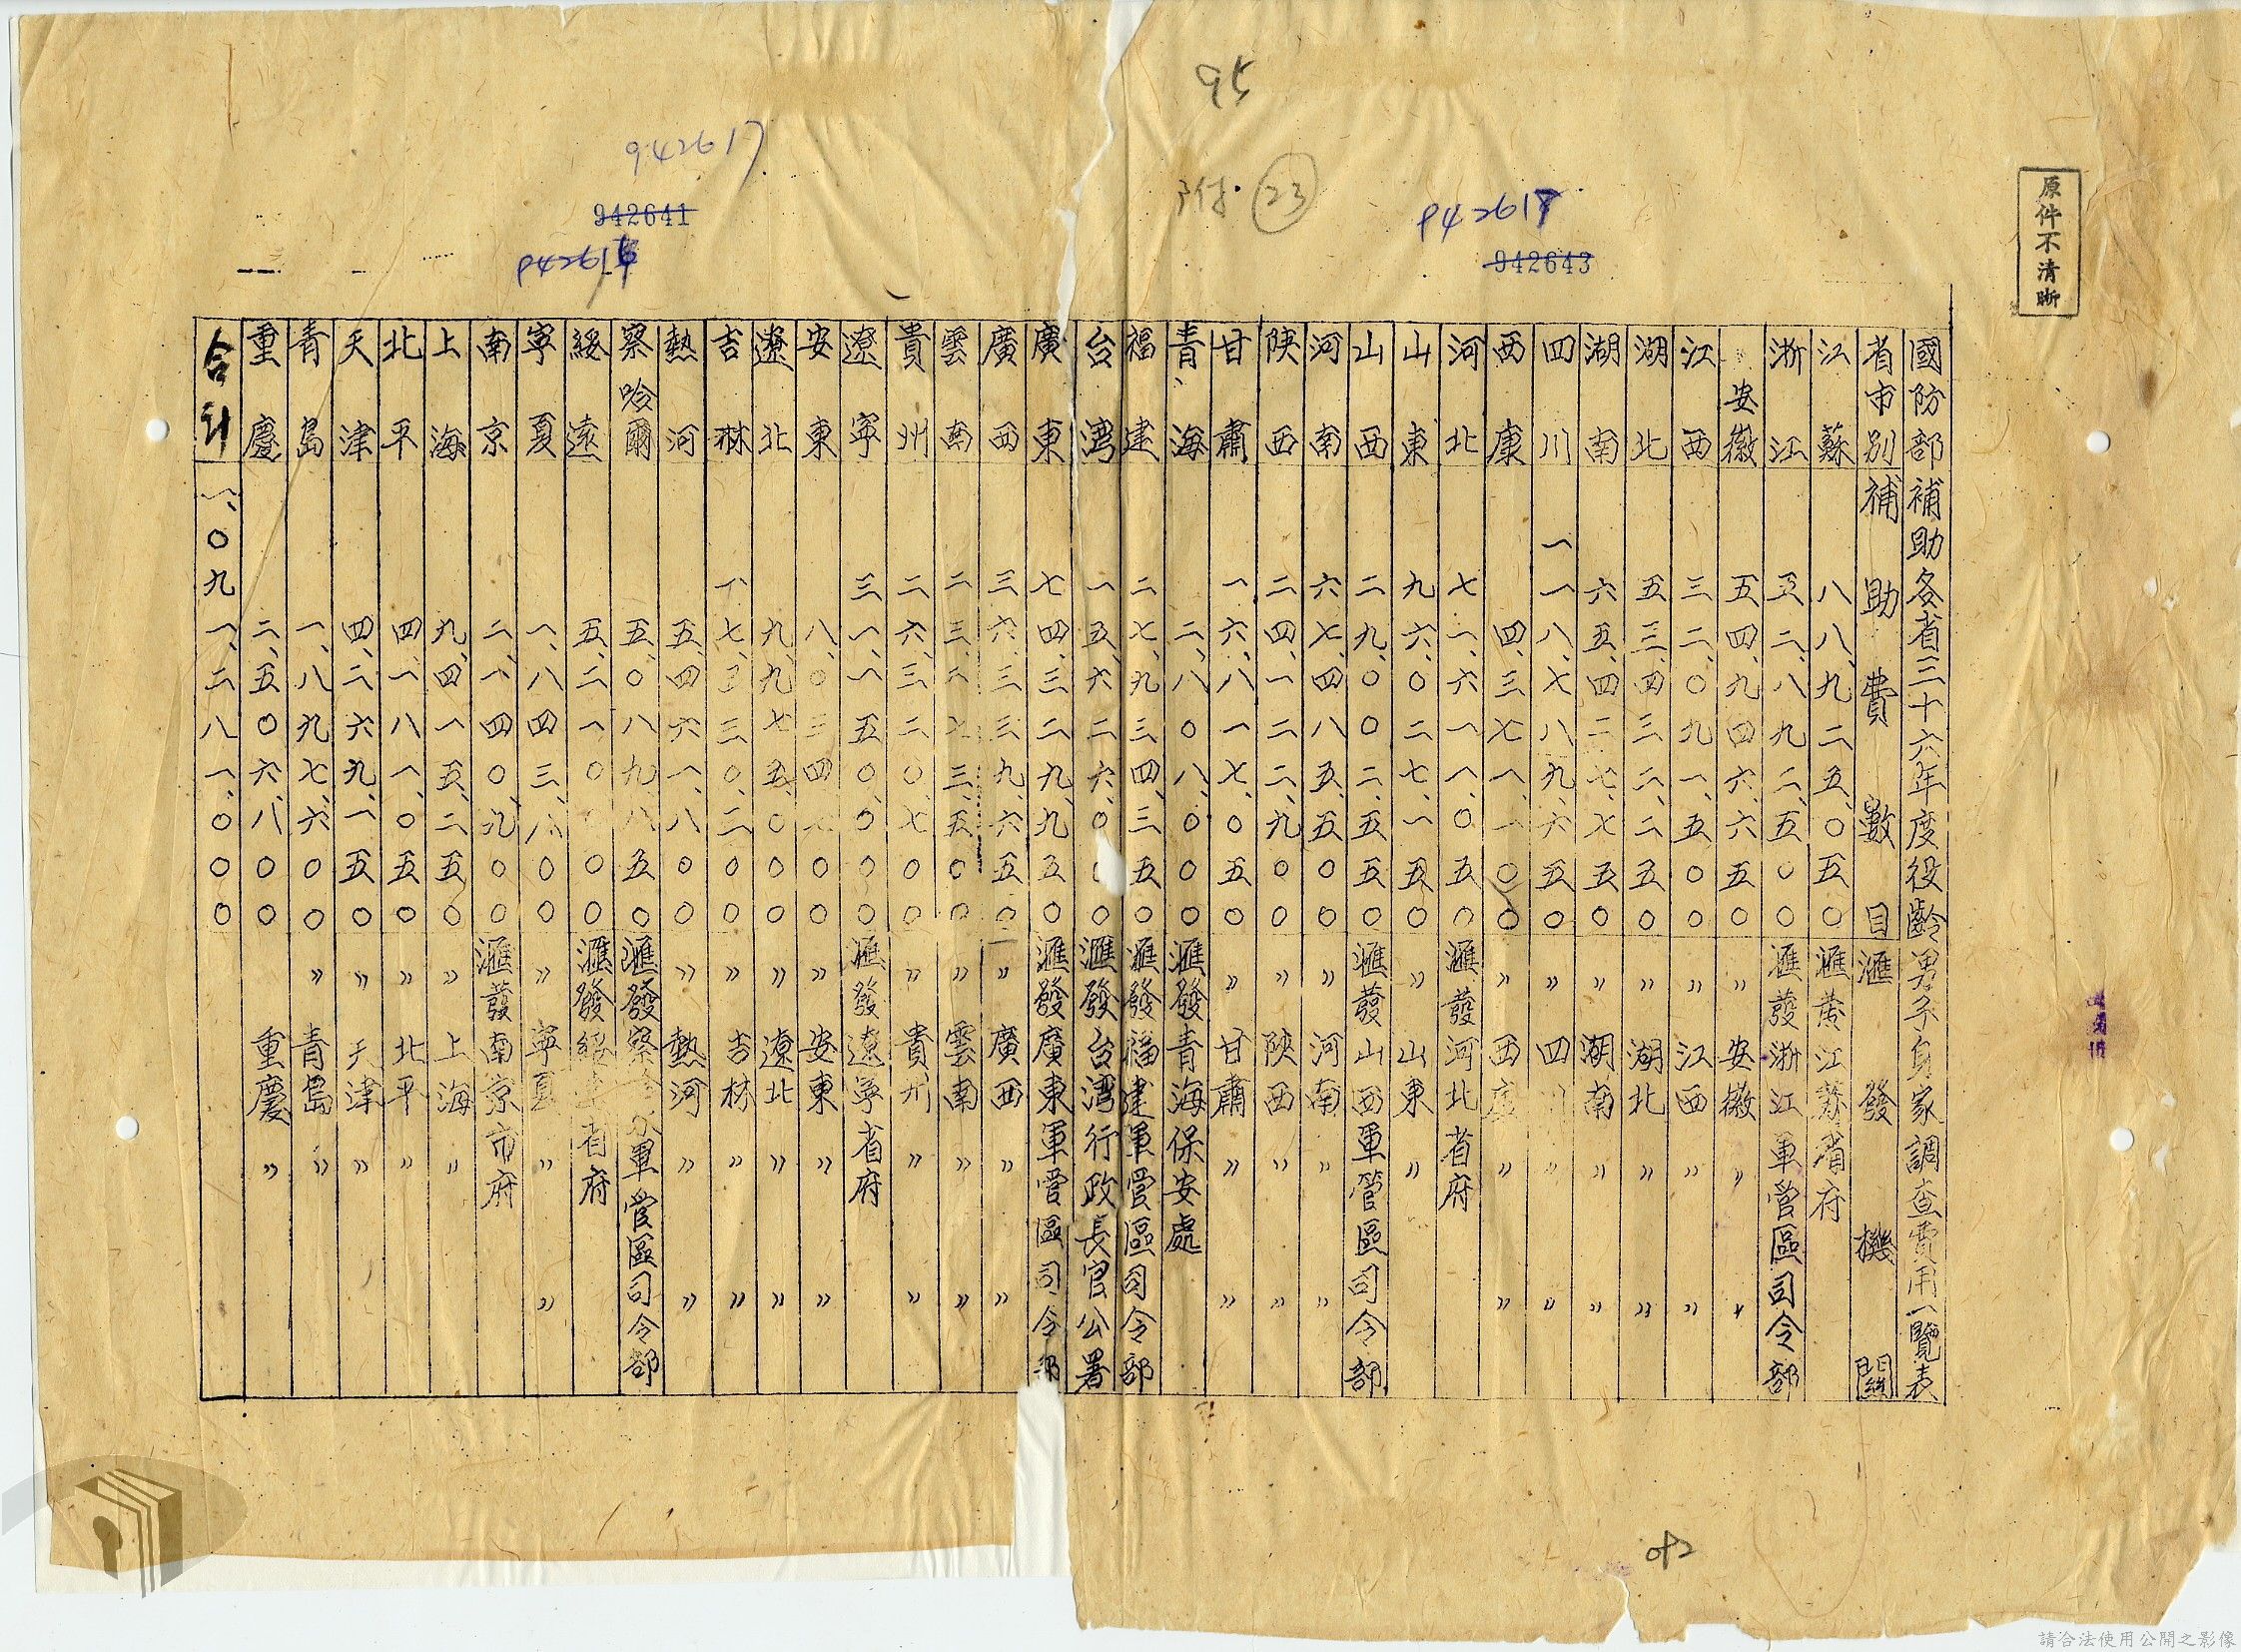 95
942617
附 23
942617
942641
942616
942643
原件不清晰
國防部補助各省三十六年度役齡男子身家調查費用一覽表
省市別 補助費數目 滙發機關
江蘇 八八、九二五、〇五〇 滙發江蘇省府
浙江 五二、八九二、五〇〇 滙發浙江軍管區司令部
安徽 五四、九四六、六五〇 〃安徽〃〃
江西 三二、〇九一、五〇〇 〃江西〃〃
湖北 五三、四三二、二五〇 〃湖北〃〃
湖南 六五、四二七、七五〇 〃湖南〃〃
四川 一一八、七八九、六五〇 〃四川〃〃
西康 四、三七一、一〇〇 〃西康〃〃
河北 七一、六一一、〇五〇 滙發河北省府
山東 九六、〇二七、一五〇 〃山東〃
山西 二九、〇〇二、五五〇 滙發山西軍管區司令部
河南 六七、四八五、五〇〇 〃河南〃〃
陝西 二四、一二二、九〇〇 〃陝西〃〃
甘肅 一六、八一七、〇五〇 〃甘肅〃〃
青海 二、八〇八、〇〇〇 滙發青海保安處
福建 二七、九三四、三五〇 滙發福建軍管區司令部
台灣 一五、六二六、〇〇〇 滙發台灣行政長官公署
廣東 七四、三二九、九五〇 滙發廣東軍管區司令部
廣西 三六、三三九、六五〇 〃廣西〃〃
雲南 二三、二七三、五〇〇 〃雲南〃〃
貴州 二六、三二〇、七〇〇 〃貴州〃〃
遼寧 三一、一五〇、〇〇〇 滙發遼寧省府
安東 八、〇三四、〇〇 〃安東〃〃
遼北 九、九七五、〇〇〇 〃遼北〃〃
吉林 一七、三三〇、二〇〇 〃吉林〃〃
熱河 五、四六一、八〇〇 〃熱河〃〃
察哈爾 五、〇八九、八五〇 滙發察哈爾軍管區司令部
綏遠 五、二一〇、〇〇〇 滙發綏遠省府
寧夏 一、八四三、八〇〇 〃寧夏〃〃
南京 二、一四〇、九〇〇 滙發南京市府
上海 九、四一五、二五〇 〃上海〃
北平 四、一八一、〇五〇 〃北平〃
天津 四、二六九、一五〇 〃天津〃
青島 一、八九七、六〇〇 〃青島〃
重慶 二、五〇六、八〇〇 重慶〃
合計 一、〇九一、二八一、〇〇〇
請合法使用公開之影像